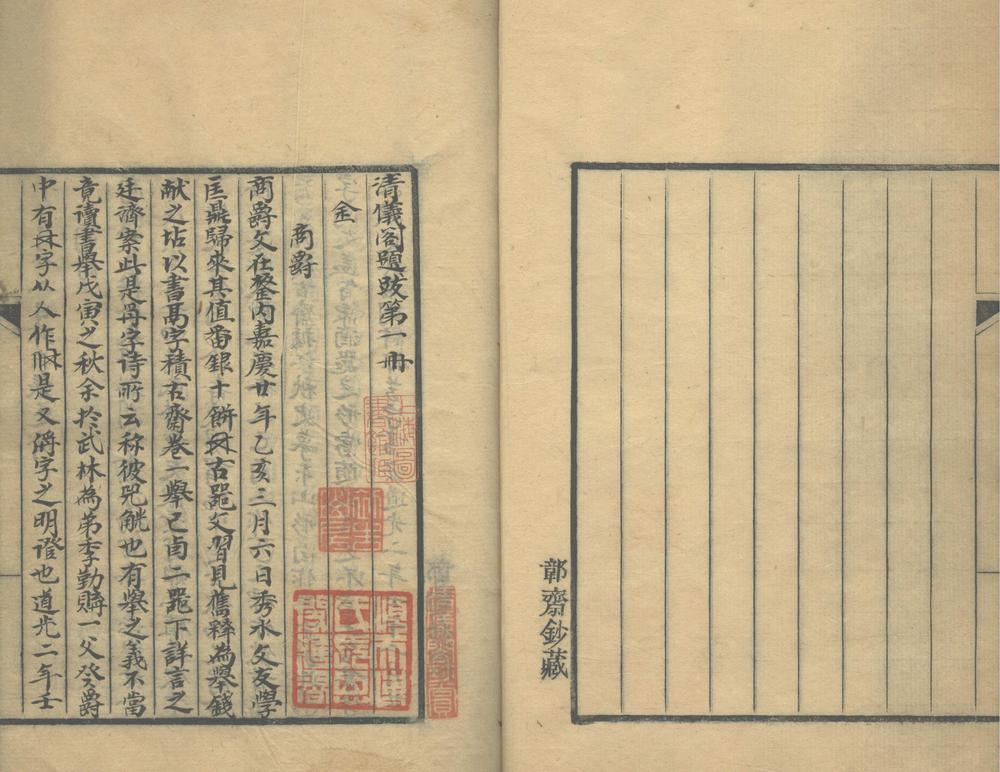 齋鈔藏
清儀閣題跋第一冊
金
商爵
商爵文在鋬内嘉慶廿年乙亥三月六日秀水文友學
匡鼎歸來其值番銀十餅古器文習見舊釋為舉錢
献之坫以書為字積古齋卷一舉己卣二器下詳言之
廷濟案此是爯字詩所云称彼兕觥也有舉之義不當
竟讀書舉戊寅之秋余於武林為弟季勤購一父癸爵
中有字从人作是又字之明證也道光二年壬
上海圖書館藏